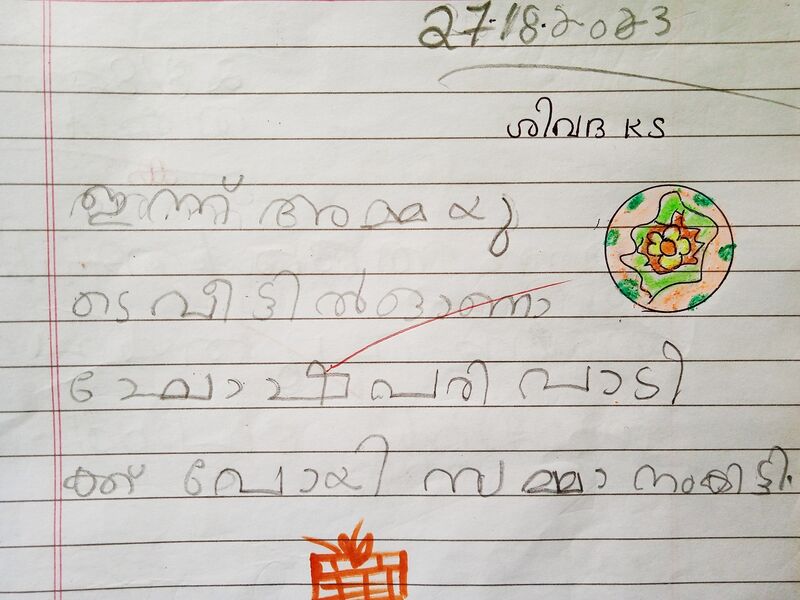 27.18.2023
ശിവദ KS
ഇന്ന് അമ്മയു
ടെ വീട്ടിൽ ഓണാ
ഘോഷപരിപാടി
ക്ക് പോയി സമ്മാനംകിട്ടി.